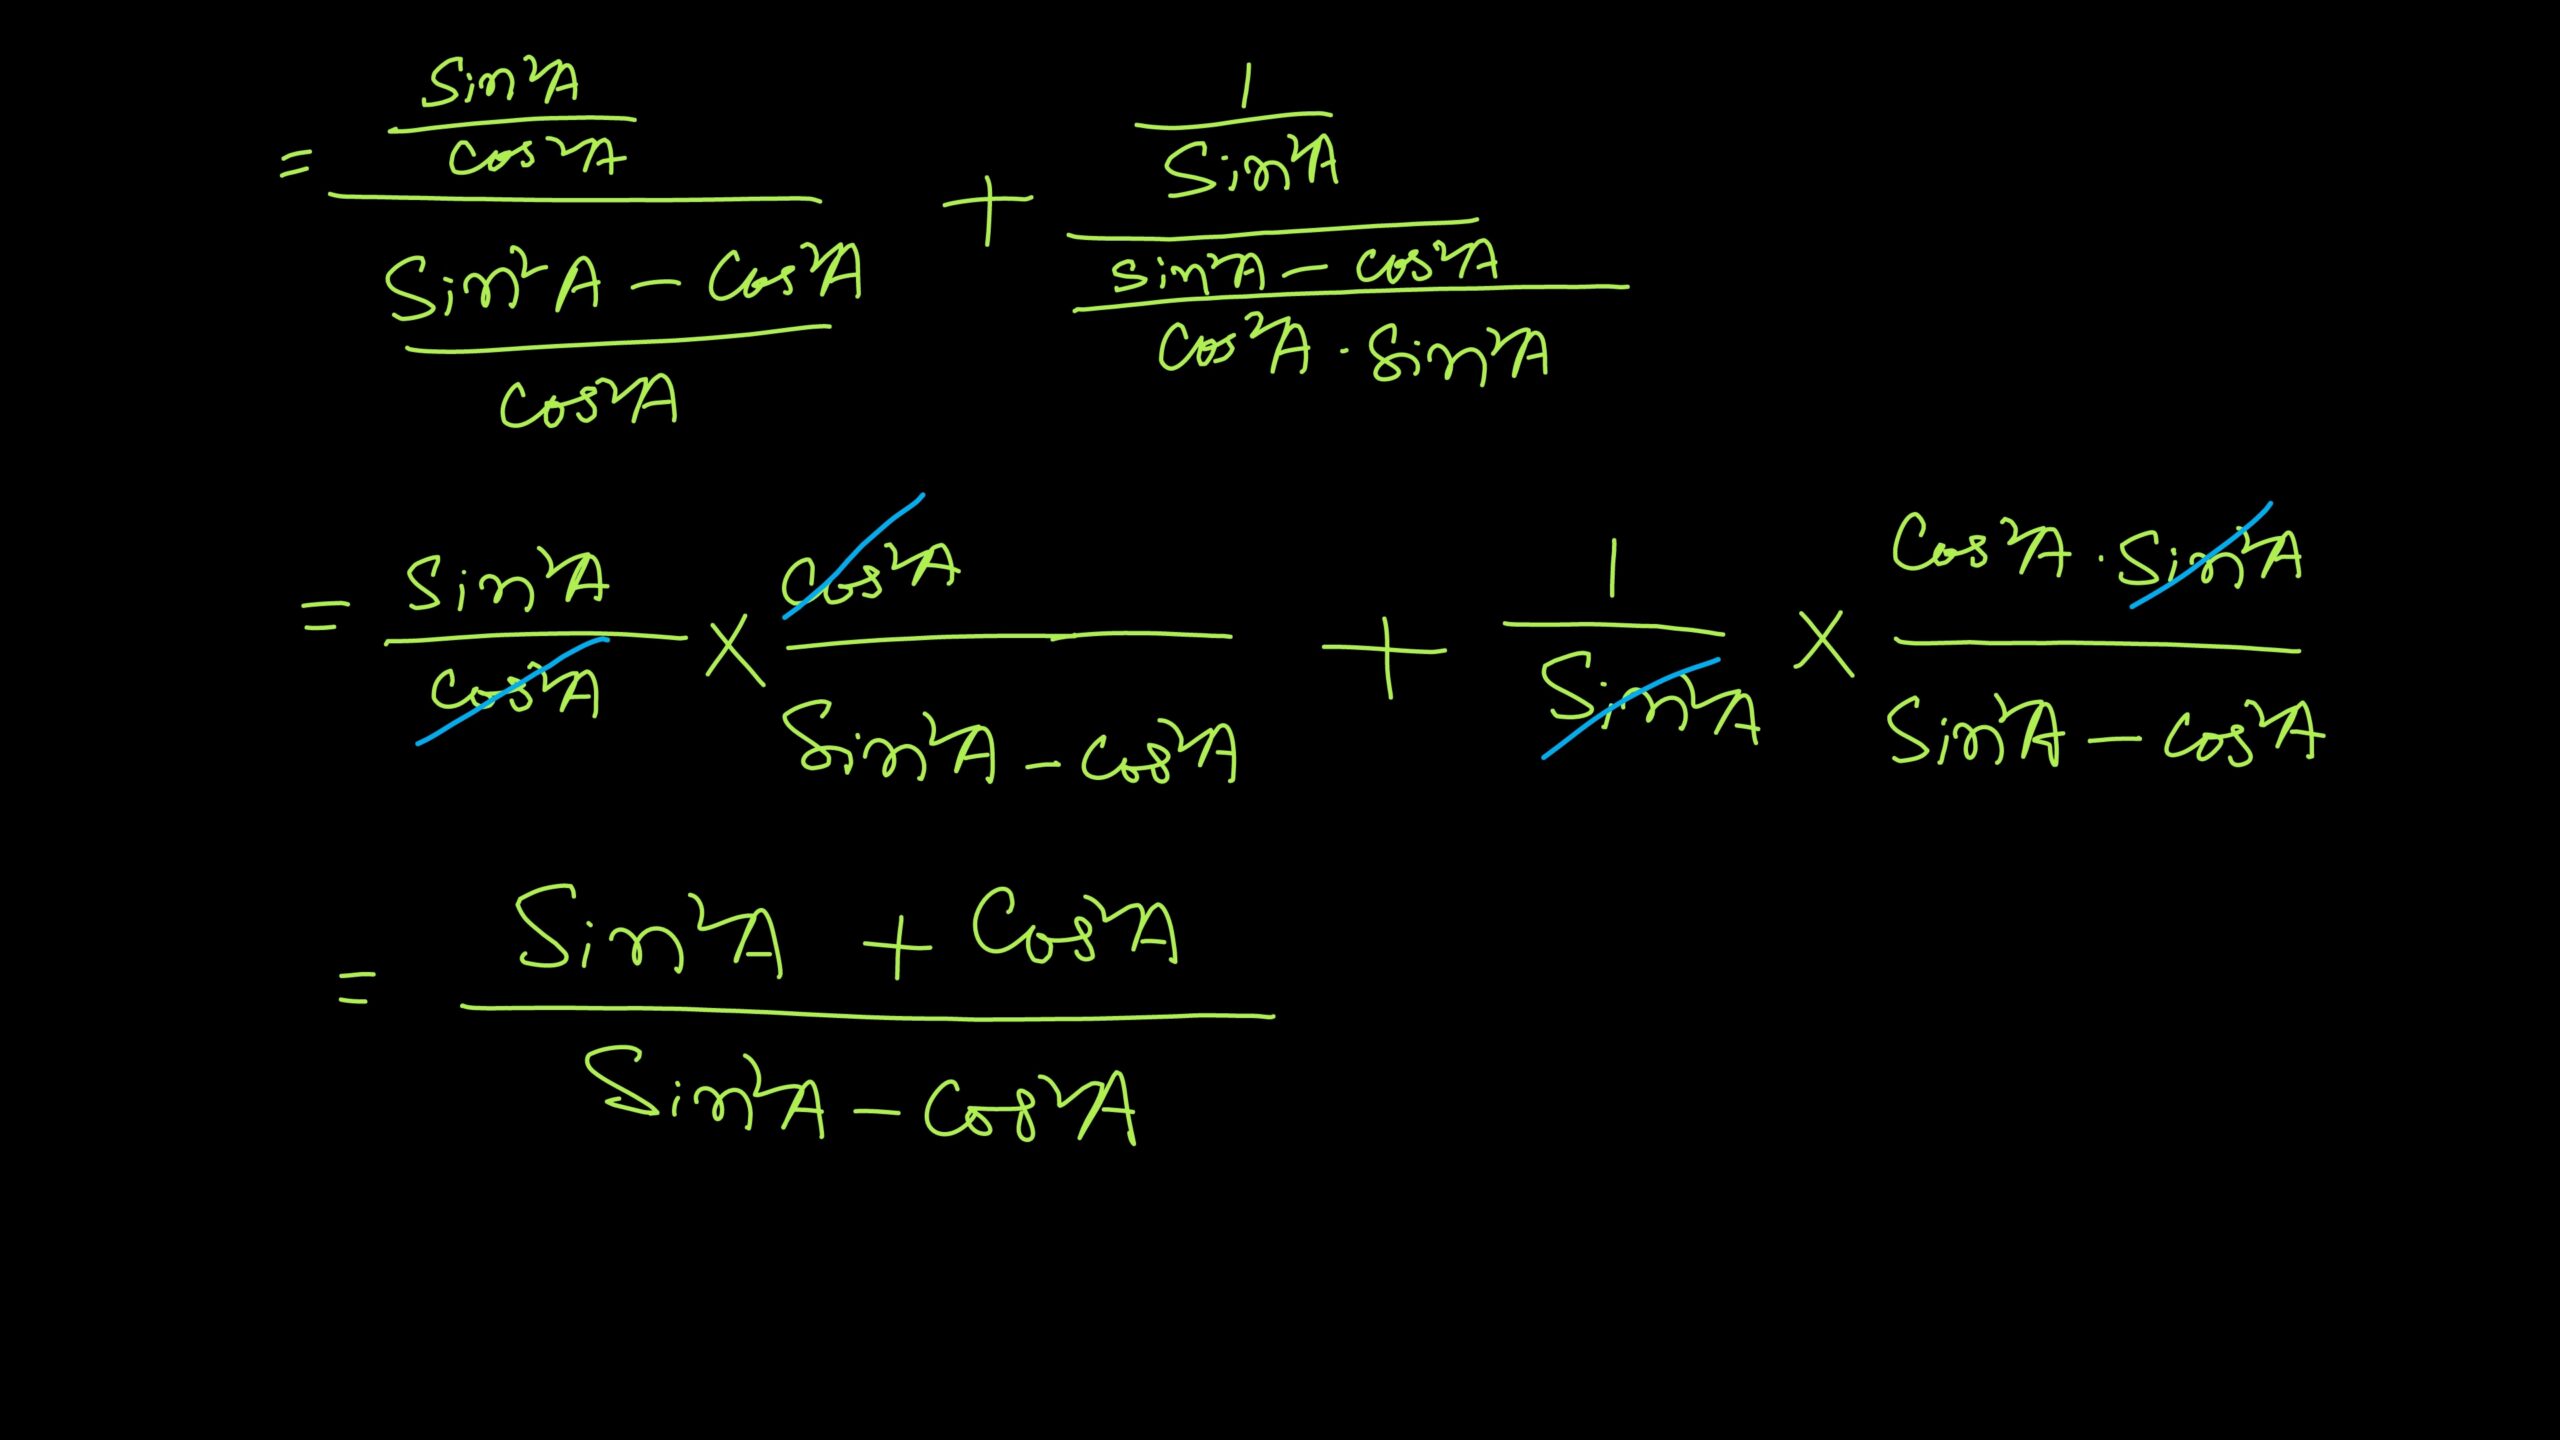 = (Sin²A / Cos²A) / ((Sin²A − Cos²A) / Cos²A) + (1 / Sin²A) / ((Sin²A − Cos²A) / (Cos²A · Sin²A))
= Sin²A / Cos²A × Cos²A / (Sin²A − Cos²A) + 1 / Sin²A × (Cos²A · Sin²A) / (Sin²A − Cos²A)
= (Sin²A + Cos²A) / (Sin²A − Cos²A)